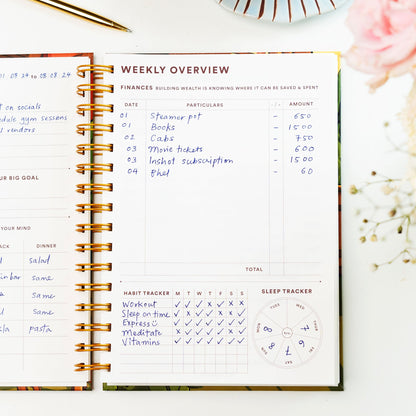 01 08 24 to 08 08 24
t on socials
dule gym sessions
l vendors
UR BIG GOAL
YOUR MIND
ACK DINNER
salad
in bar same
same
la pasta
WEEKLY OVERVIEW
FINANCES BUILDING WEALTH IS KNOWING WHERE IT CAN BE SAVED & SPENT
DATE PARTICULARS - / + AMOUNT
01 Steamer pot - 650
01 Books - 1500
02 Cabs - 750
03 Movie tickets - 600
03 Inshot subscription - 1500
04 Bhel - 60
TOTAL
HABIT TRACKER M T W T F S S
Workout ✓ ✓ ✓ x ✓ x x
Sleep on time
Express
Meditate
Vitamins
SLEEP TRACKER
MON TUES WED THUR FRI SAT SUN
8 7 6 7 6 8